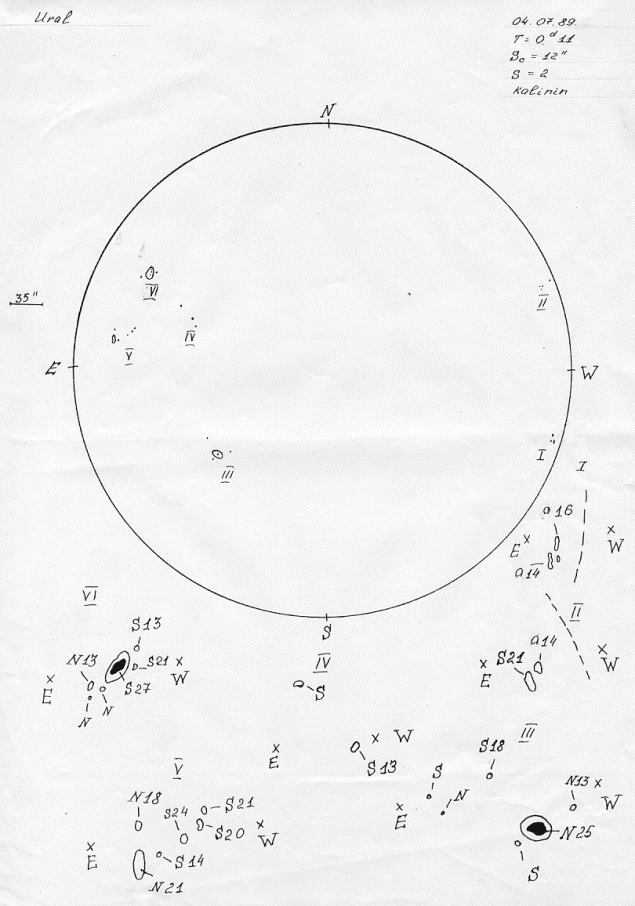 Ural
04.07.89.
T = 0.ᵈ11
S = 2
Kalinin
N
35"
VI
II
IV
V
E
W
III
I
I
a 16
E x
x W
a14
S
II
VI
S13
N13
S21 x
S27
W
x E
N
N
IV
S
a14
S21
x E
x W
V
x E
x W
S13
S18
III
S
N
x E
N13 x
W
N25
S
N18
S24
S21
S20
x W
x E
S14
N21